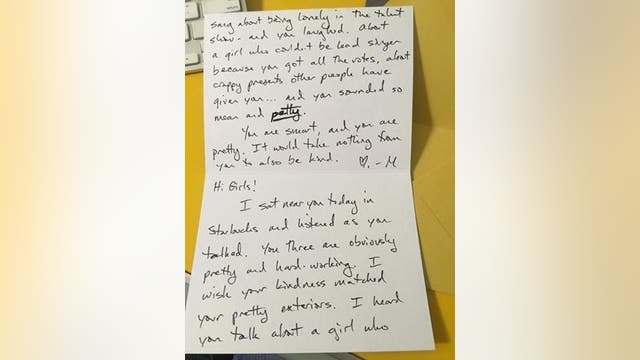 sang about being lonely in the talent
show - and you laughed. About
a girl who couldn't be lead singer
because you got all the votes, about
crappy presents other people have
given you... and you sounded so
mean and petty.
You are smart, and you are
pretty. It would take nothing from
you to also be kind. ♡. - M
Hi Girls!
I sat near you today in
Starbucks and listened as you
talked. You three are obviously
pretty and hard-working. I
wish your kindness matched
your pretty exteriors. I heard
you talk about a girl who